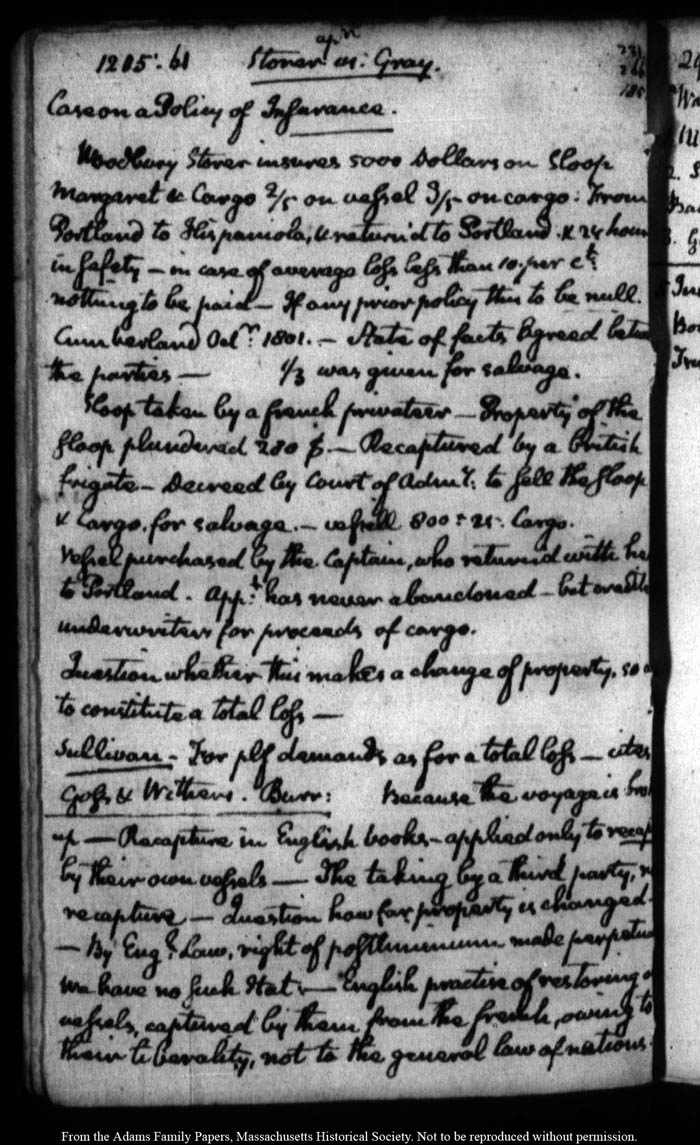 1215. 61 Storer apn vs: Gray.
231
266
185
Case on a Policy of Insurance.
Woodbury Storer insures 5000 Dollars on Sloop
Margaret & Cargo 2/5 on vessel 3/5 on cargo: From
Portland to Hispaniola, & return'd to Portland. & 24 hours
in safety — in case of average loss less than 10. per ct
nothing to be paid — If any prior policy this to be null.
Cumberland Octr 1801. — State of facts agreed betw
the parties — 1/3 was given for salvage.
Sloop taken by a french privateer — Property of the
sloop plundered 280 $ — Recaptured by a british
frigate — Decreed by Court of Admy: to sell the sloop
& Cargo. for salvage. — vessell 800: 25: Cargo.
Vessel purchased by the Captain, who return'd with he
to Portland. Appt has never abandoned — but credits
underwriters for proceeds of cargo.
Question whether this makes a change of property, so a
to constitute a total loss —
Sullivan — For plf demands as for a total loss — cites
Goss & Withers. Burr: Because the voyage is bro
up — Recapture in English books — applied only to recap
by their own vessels — The taking by a third party, n
recapture — Question how far property is changed
— By Engs Law, right of postliminium made perpetua
We have no such Stat — English practise of restoring
vessels, captured by them from the french, owing to
their liberality, not to the general law of nations.
24
We
Bo
From the Adams Family Papers, Massachusetts Historical Society. Not to be reproduced without permission.